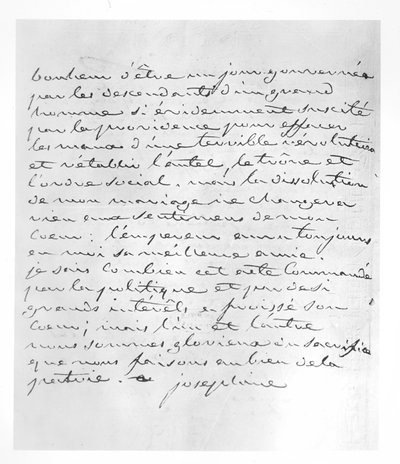 bonheur d'être un jour gouvernée
par les descendants d'un grand
homme si évidemment suscité
par la providence pour effacer
les maux d'une terrible révolution
et rétablir l'autel, le trône et
l'ordre social. mais la dissolution
de mon mariage ne changera
rien aux sentimens de mon
coeur : l'empereur aura toujours
en moi sa meilleure amie.
je sais combien cet acte commandé
par la politique et par de si
grands intérêts, a froissé son
coeur ; mais l'un et l'autre
nous sommes glorieux du sacrifice
que nous faisons au bien de la
patrie.
joséphine